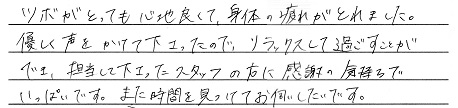 ツボがとっても心地良くて、身体の疲れがとれました。
優しく声をかけて下さったので、リラックスして過ごすことが
でき、担当して下さったスタッフの方に感謝の気持ちで
いっぱいです。また時間を見つけてお伺いしたいです。